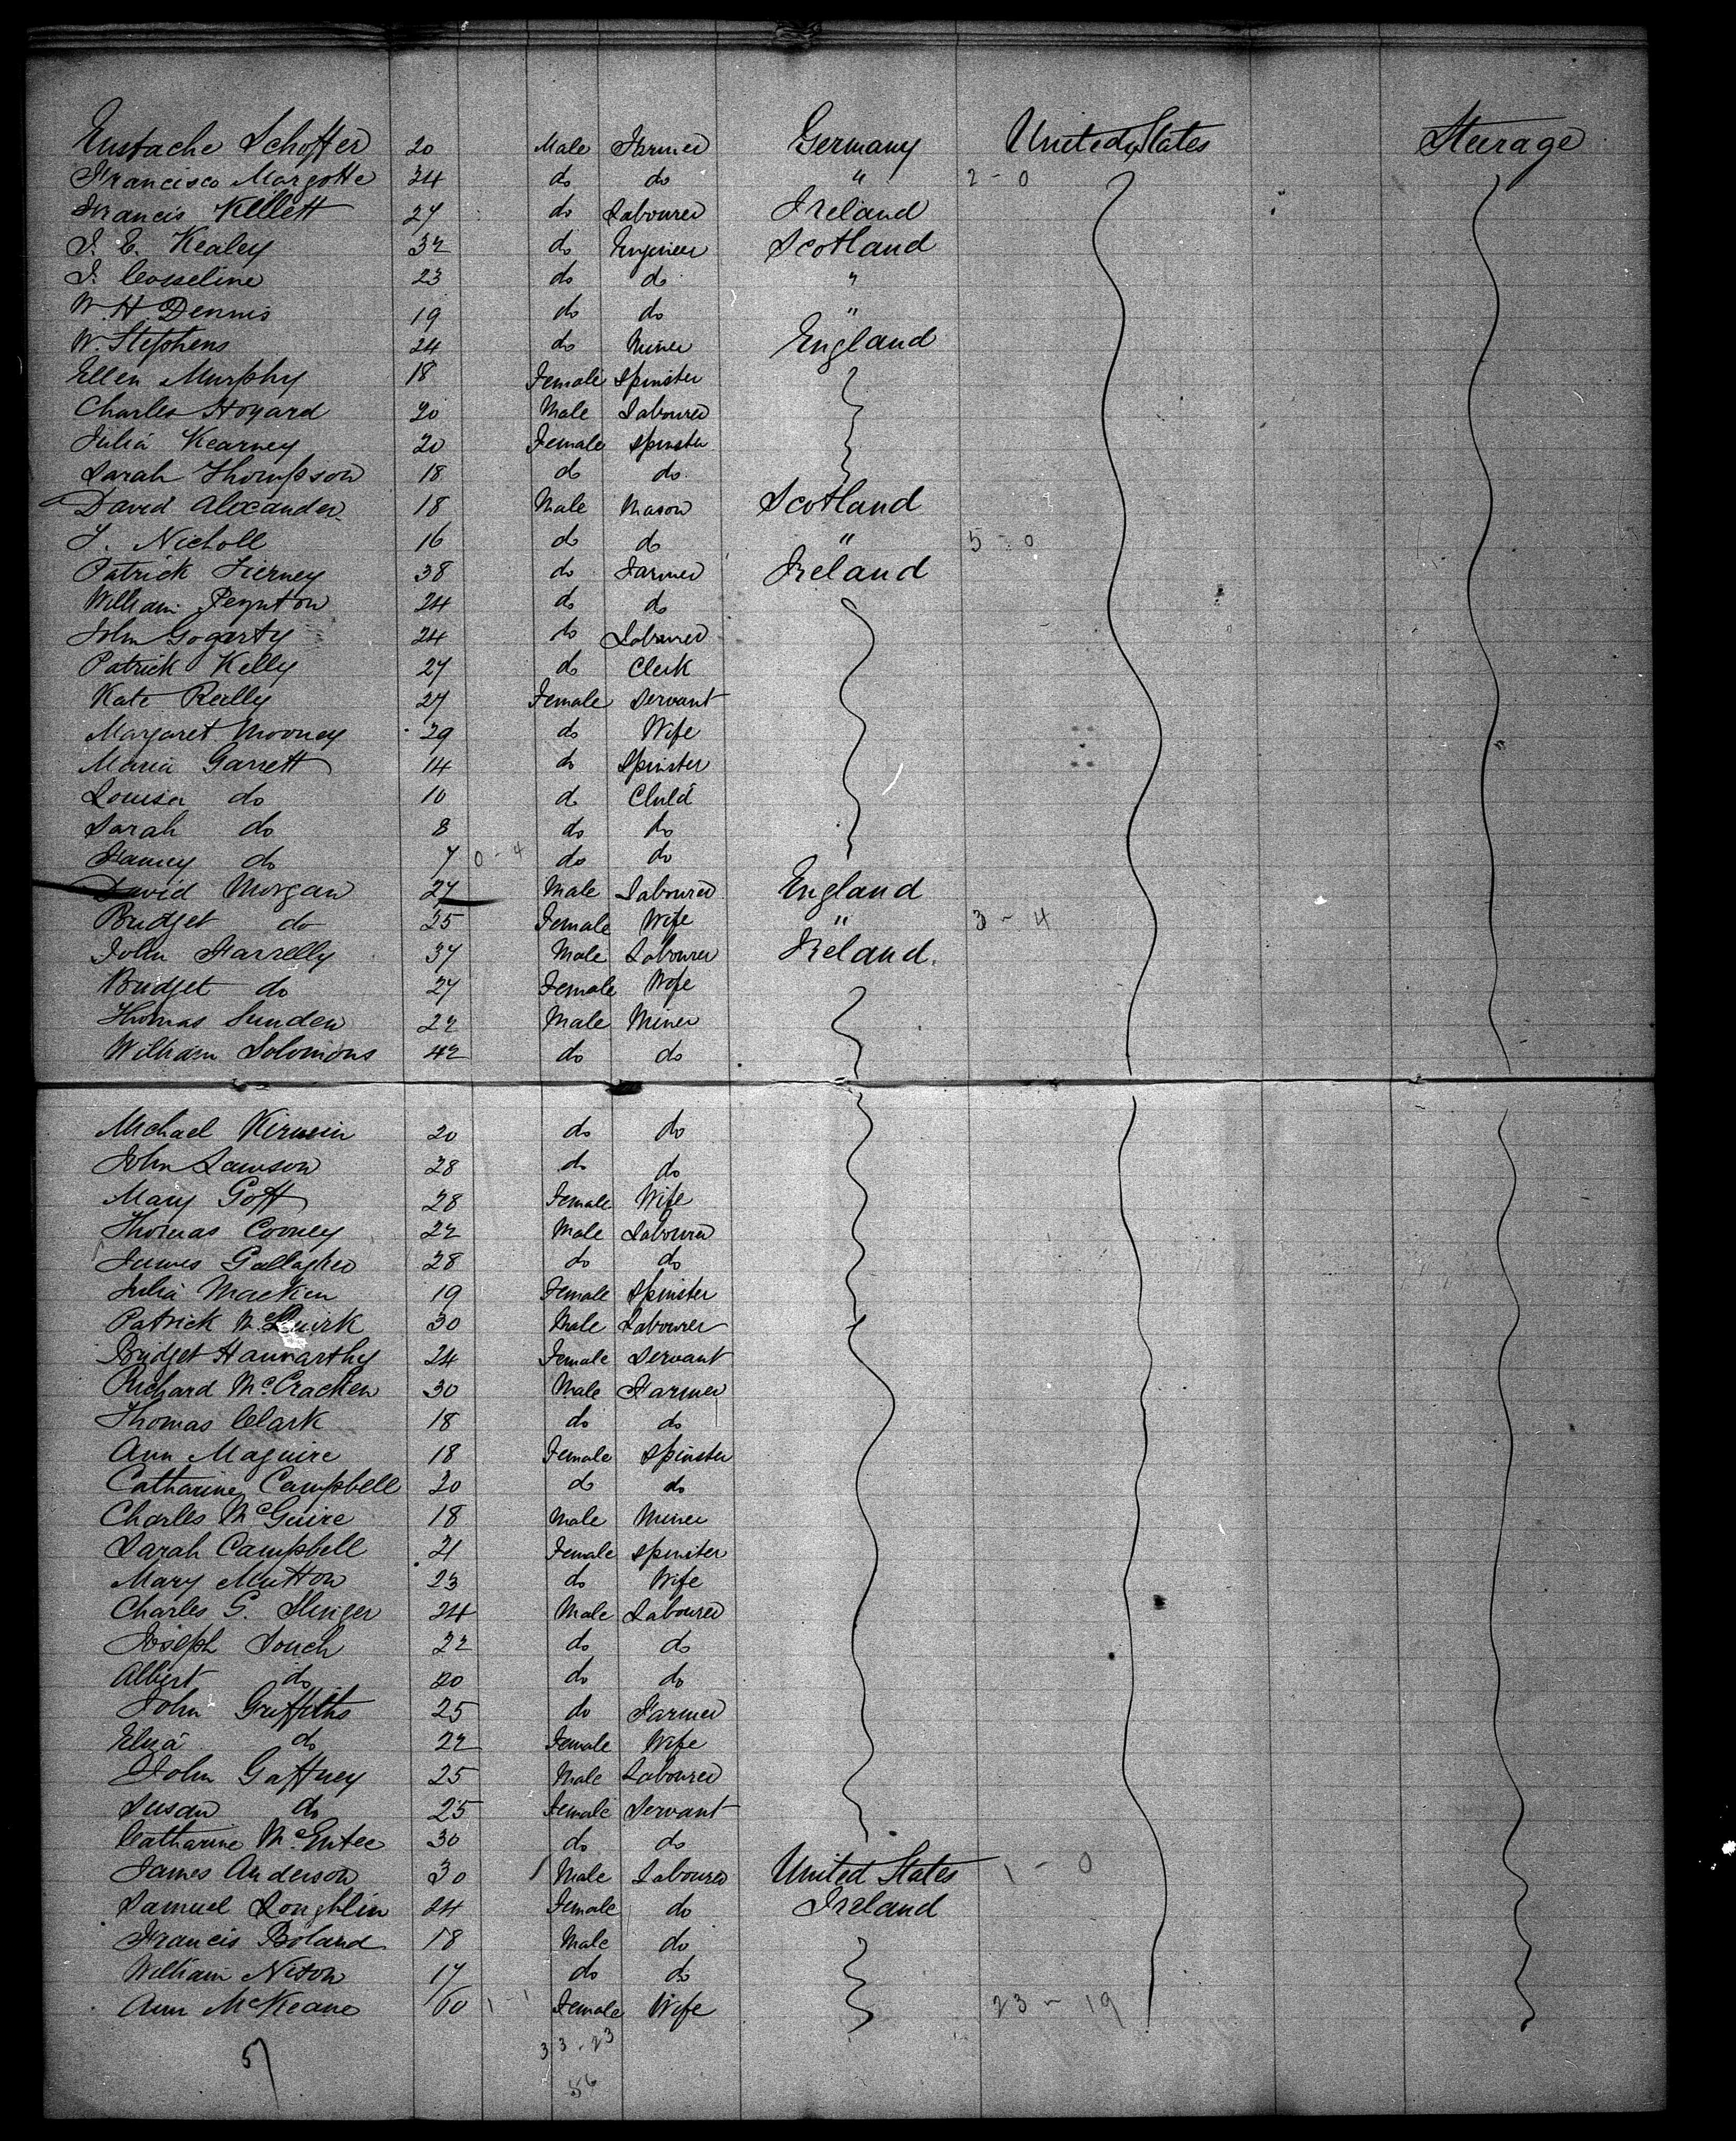 Eustache Schoffer 20 Male Farmer Germany United States Steerage
Francisco Margotte 34 do do " 2 - 0
Francis Kellett 27 do Labourer Ireland
J. E. Kealey 32 do Engineer Scotland
J. Cosseline 23 do do "
W. H. Dennis 19 do do "
W. Stephens 24 do Miner England
Ellen Murphy 18 Female Spinster
Charles Hoyard 20 Male Labourer
Julia Kearney 20 Female Spinster
Sarah Thompson 18 do do
David Alexander 18 Male Mason Scotland
J. Nicholl 16 do do " 5 - 0
Patrick Tierney 38 do Farmer Ireland
William Peynton 24 do do
John Gogarty 24 do Labourer
Patrick Kelly 27 do Clerk
Kate Reilly 27 Female Servant
Margaret Mooney 29 do Wife
Maria Garrett 14 do Spinster
Louisa do 10 do Child
Sarah do 8 do do
Fanny do 7 0 - 4 do do
David Morgan 27 Male Labourer England
Bridget do 25 Female Wife " 3 - 4
John Farrelly 37 Male Labourer Ireland.
Bridget do 27 Female Wife
Thomas Sunden 22 Male Miner
William Solomons 42 do do
Michael Kirwin 20 do do
John Lawson 28 do do
Mary Goff 28 Female Wife
Thomas Cooney 22 Male Labourer
James Gallagher 28 do do
Julia Macken 19 Female Spinster
Patrick McQuirk 30 Male Labourer
Bridget 24 Female Servant
Richard McCracken 30 Male Farmer
Thomas Clark 18 do do
Ann Maguire 18 Female Spinster
Catharine Campbell 20 do do
Charles McGuire 18 Male Miner
Sarah Campbell 21 Female Spinster
Mary Mutton 23 do Wife
Charles G. Slinger 24 Male Labourer
Joseph Souch 22 do do
Albert do 20 do do
John Griffiths 25 do Farmer
Eliza do 22 Female Wife
John Gaffney 25 Male Labourer
Susan do 25 Female Servant
Catharine McEntee 30 do do
James Anderson 30 Male Labourer United States 1 - 0
Samuel Loughlin 24 Female do Ireland
Francis Boland 18 Male do
William Nixon 17 do do
Ann McKeane 60 1 - 1 Female Wife 23 - 19
57 33 - 23
56